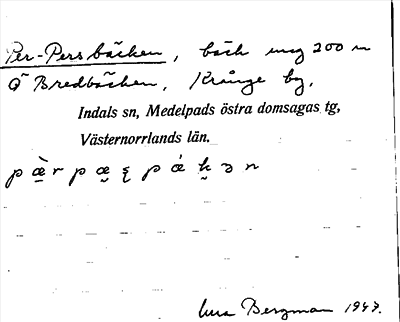 Per-Persbäcken, bäck mng 200 m
Ö Bredbäcken, Krånge by,
Indals sn, Medelpads östra domsagas tg,
Västernorrlands län.
Bergman 1947.